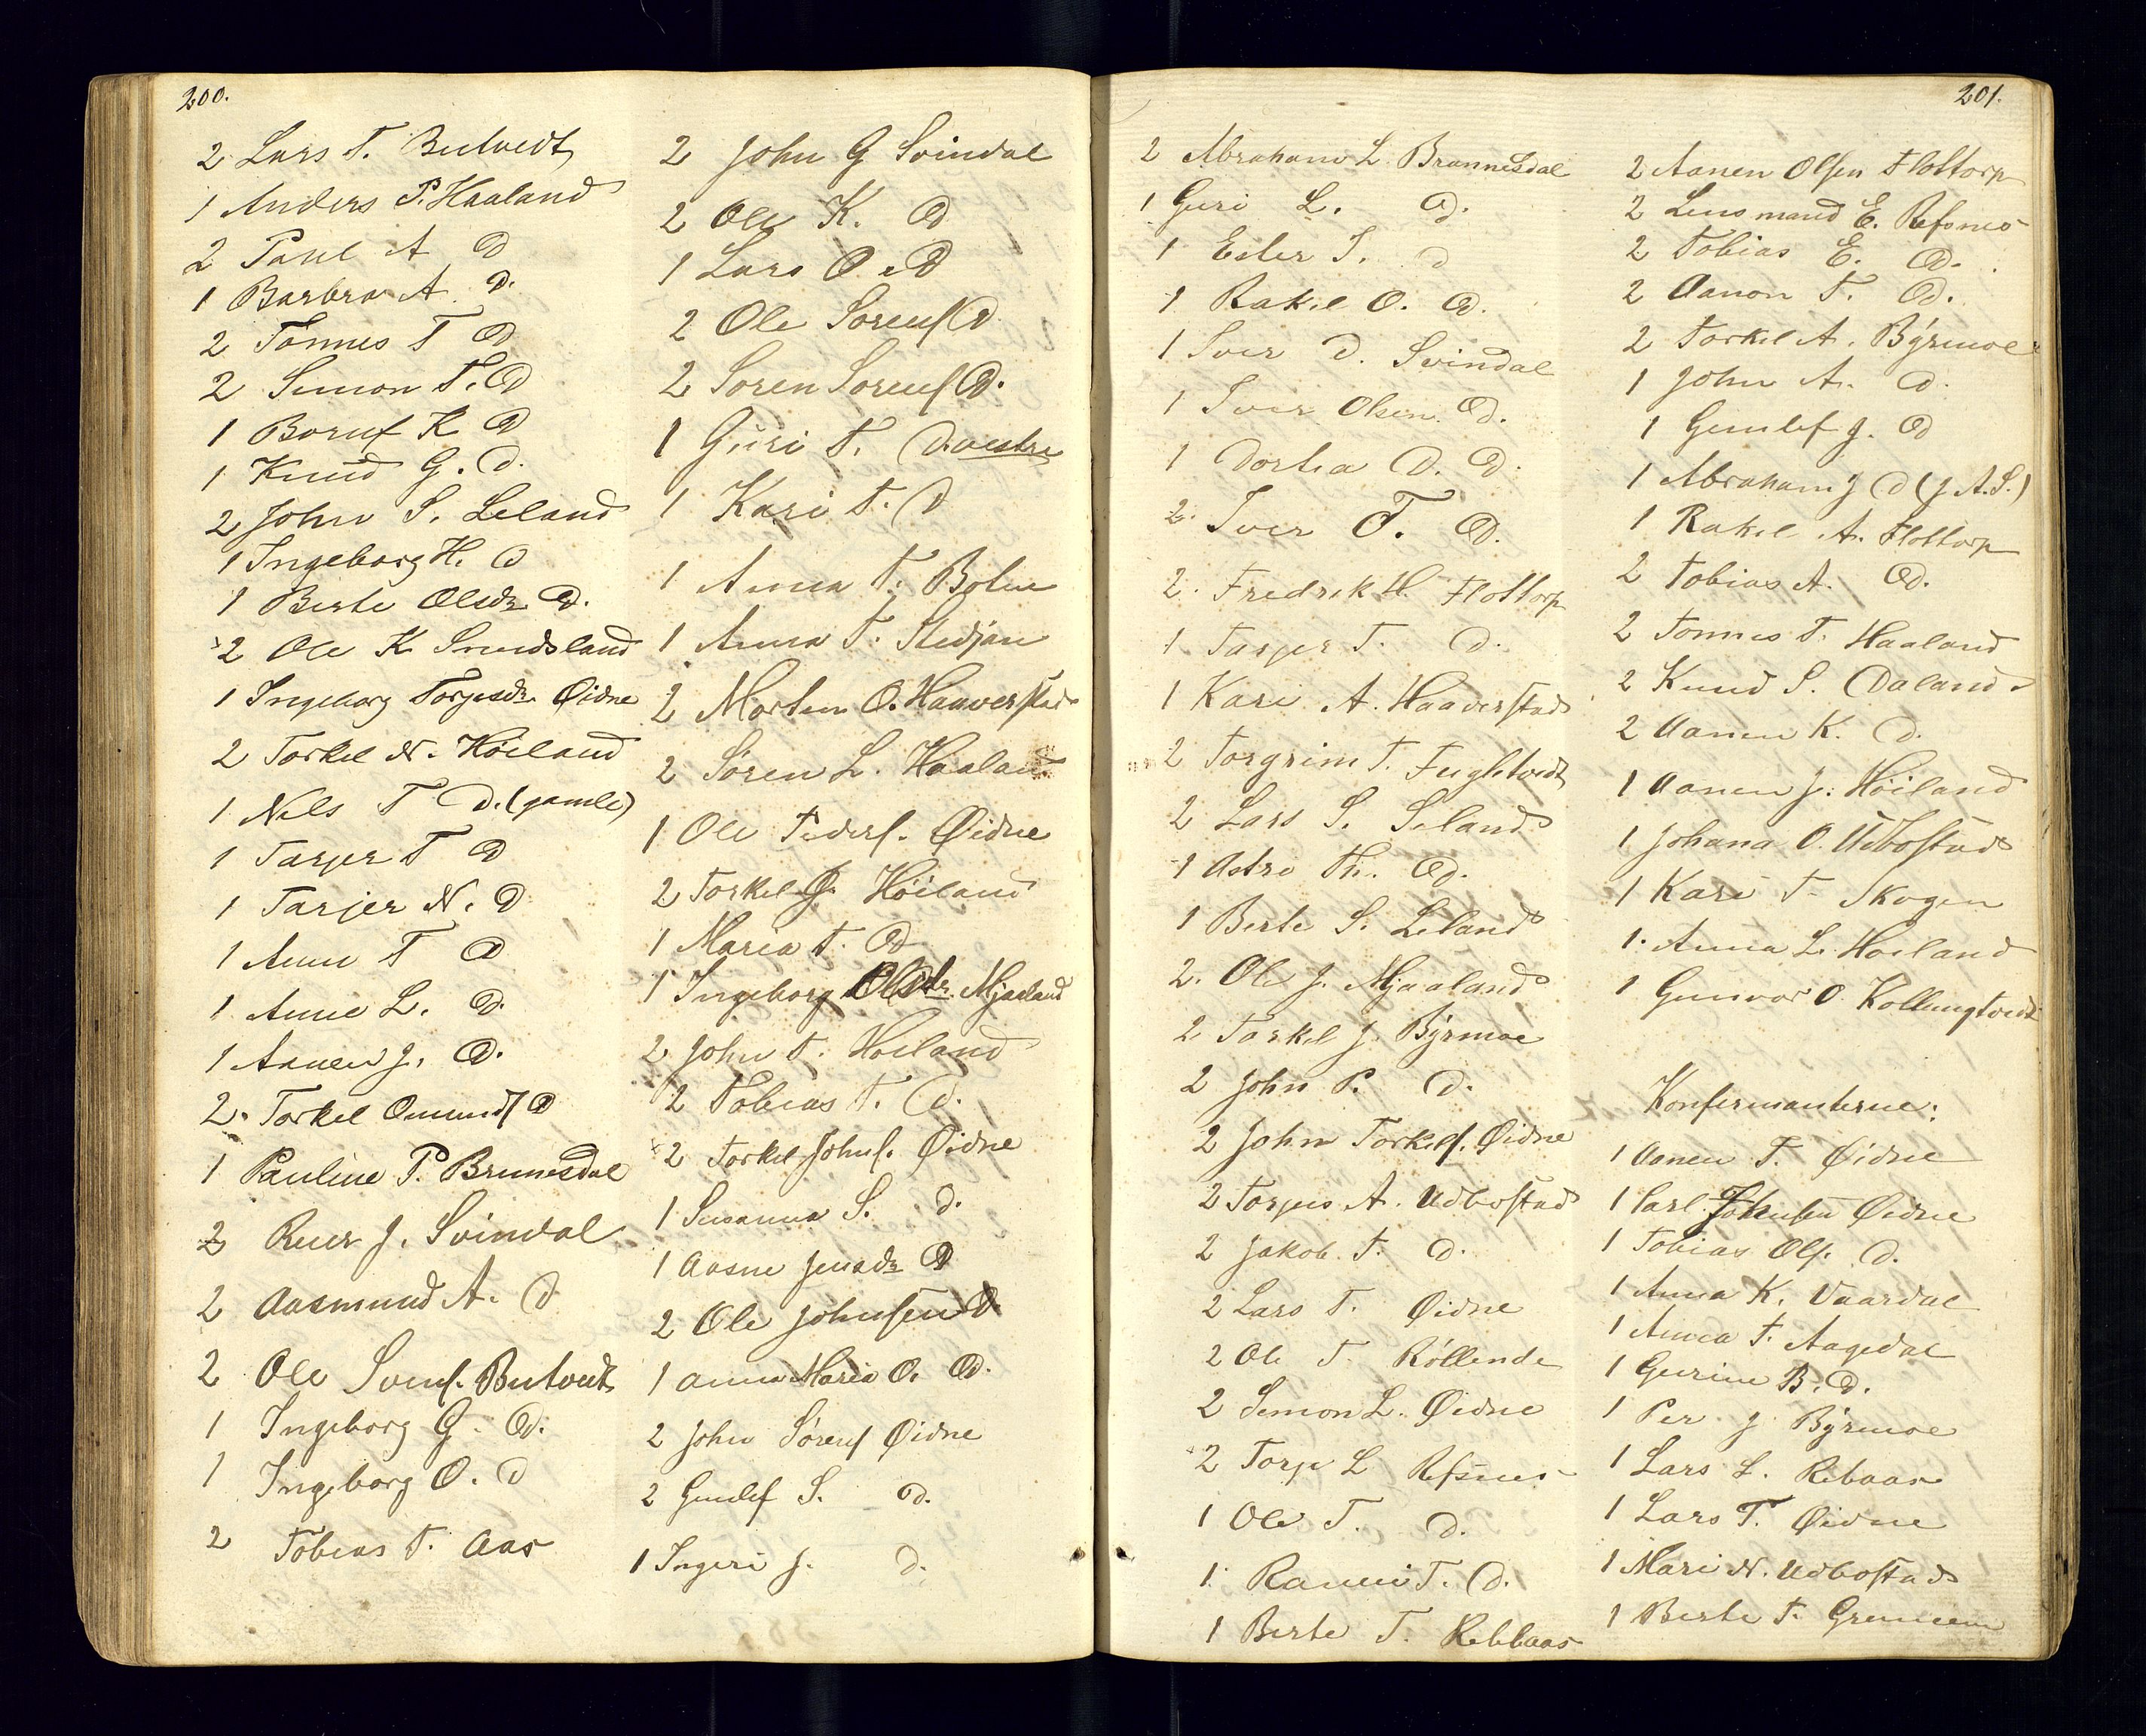 200.
2 Lars T. Butvedt
1 Anders P. Haaland
2 Paul A D
1 Barbro A. D.
2 Tønnes T D
2 Simon T. D
1 Boruf K D
1 Knud G. D.
2 John S. Leland
1 Ingeborg H. D
1 Berte Olsdr D.
2 Ole K. Smedsland
1 Ingeborg Torjesdr Øidne
2 Torkel N. Høiland
1 Nels T D. (gamle)
1 Tarjer T D
1 Tarjer N. D
1 Anne T D
1 Anne L. D.
1 Aanen J. D.
2. Torkel Omunds D
1 Pauline P. Brunesdal
2 Reier J. Svindal
2 Aasmund A. D
2 Ole Svens. Butvedt
1 Ingeborg G. D.
1 Ingeborg O. D
2 Tobias T. Aas
2 John G Svindal
2 Ole K. D
1 Lars O. D
2 Ole Sørens D
2 Søren Sørens D.
1 Guri T. D. vestre
1 Kari T. D
1 Anna T. Bolen
1 Anna T. Stedjan
2 Morten O. Haaverstad
2 Søren L. Haaland
1 Ole Peders. Øidne
2 Torkel J. Høiland
1 Maria T. D.
1 Ingeborg Olsdr. Mjaaland
2 John T. Høiland
2 Tobias T. D.
2 Torkel Johns. Øidne
1 Susanna S. D.
1 Aasne Jensdr D
2 Ole Johnsen D.
1 Anna Maria O. D.
2 John Sørens Øidne
2 Gunlef S. D.
1 Ingeri J. D.
201.
2 Abraham L. Brannesdal
1 Guri L. D.
1 Ester S. D
1 Rakel O. D.
1 Iver D. Svindal
1 Iver Olsen D.
1 Dortea D. D.
2. Iver T. D.
2. Fredrek H. Flottorp
1. Tarjer T. D.
1 Kari A. Haaverstad
2 Torgrim T. Fugletvedt
2 Lars S. Seland
1 Astri Th. D.
1 Berte S. Leland
2. Ole J. Mjaaland
2 Torkel J. Byrmoe
2 John P. D.
2 John Torkels. Øidne
2 Torjus A. Udbostad
2 Jakob T. D.
2 Lars T. Øidne
2 Ole T. Røllend
2 Simon L. Øidne
2 Torje L Refsnes
1 Ole T. D.
1. Ranei T. D.
1 Berte T. Rebbaas
2 Aanen Olsen Flottorp
2 Lensmand E. Refsnes
2 Tobias E. D.
2 Aanon T. D.
2 Torkel A. Byrmoe
1 John A. D.
1 Gunlef J. D
1 Abraham J D (J. A. S.)
1 Rakel A. Flottorp
2 Tobias A. D.
2 Tønnes T. Haaland
2 Knud S. Daland
2 Aanen K. D.
1 Aanen J. Høiland
1 Johana O. Udbostad
1 Kari T. Skogen
1. Anna L. Høiland
1 Gunvor O. Kollungtvedt
Konfermanterne:
1 Aanen T. Øidne
1 Carl Johnsen Øidne
1 Tobias Ols. D.
1 Anna K. Vaardal
1 Anna T. Aagedal
1 Gurine B. D.
1 Per J. Byrmoe
1 Lars L. Rebaas
1 Lars T. Øidne
1 Mari N. Udbostad
1 Berte T.